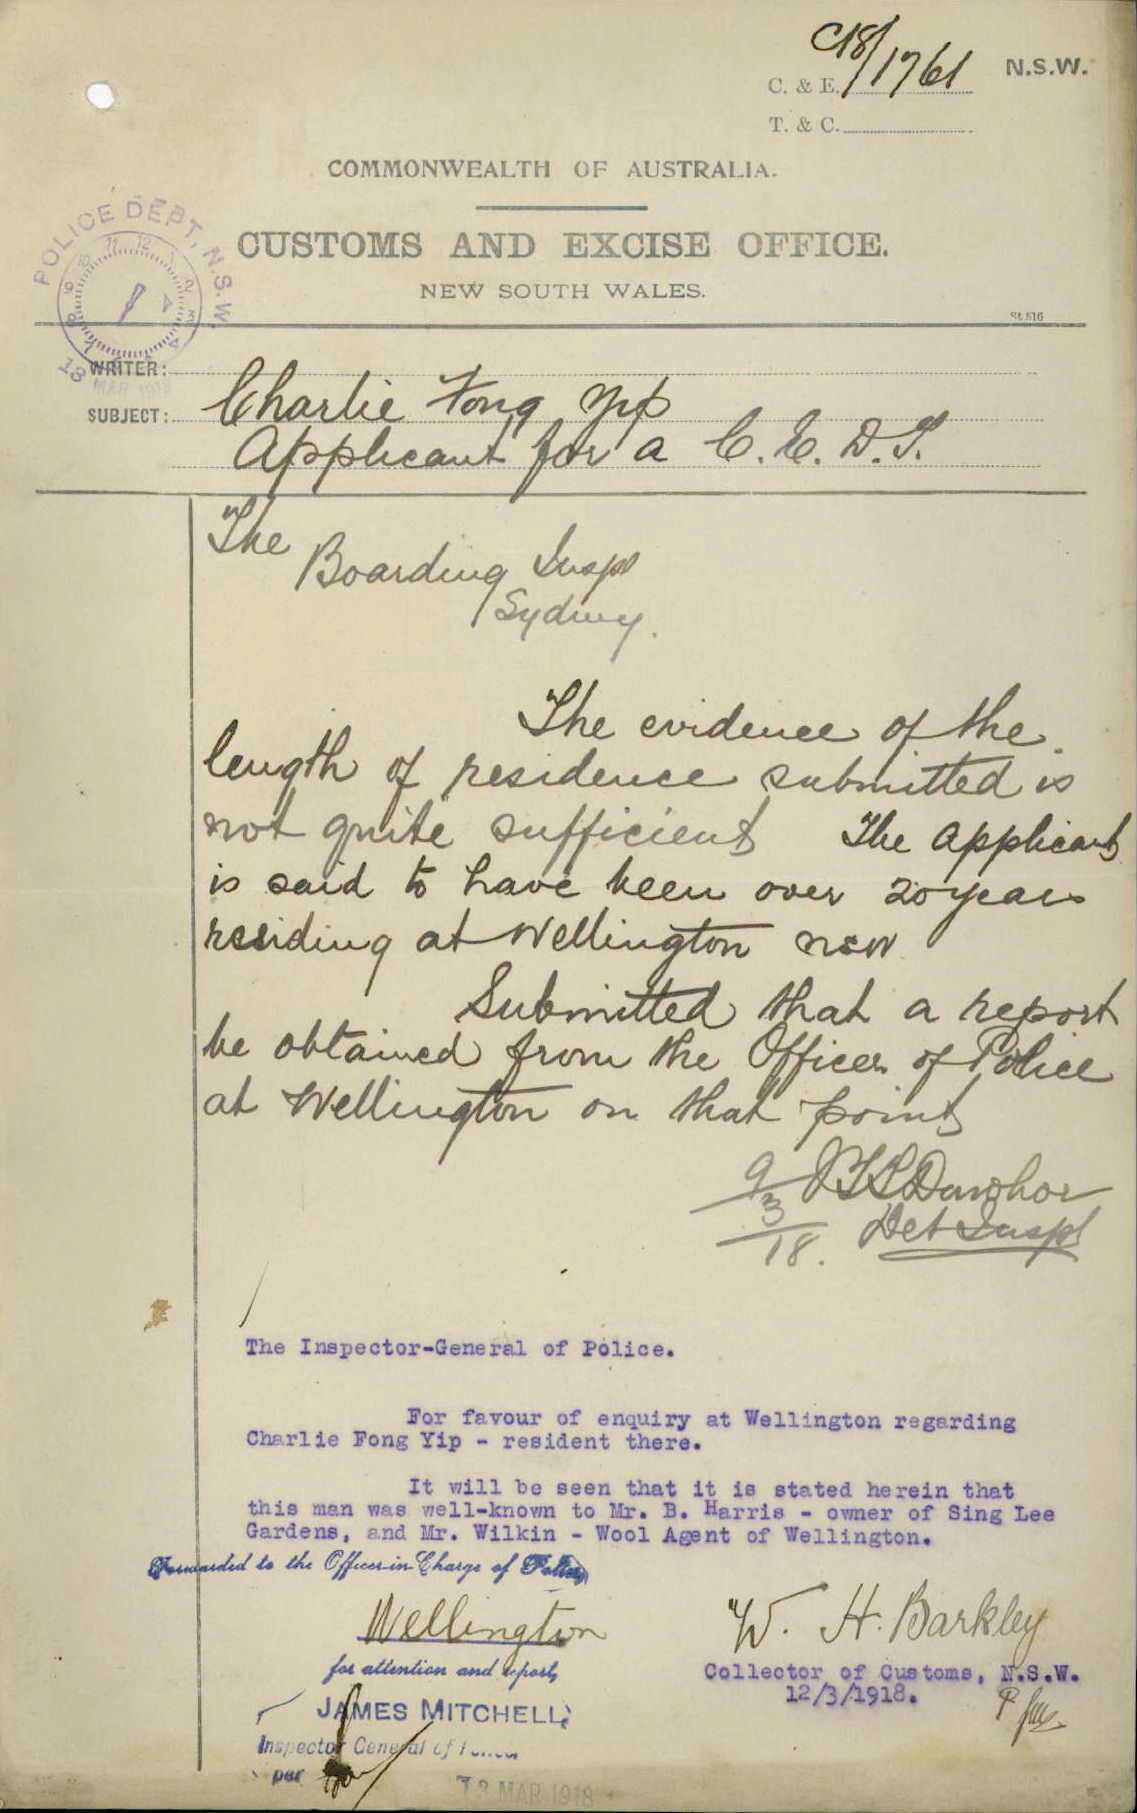 C18/1761
N.S.W.
C. & E.
T. & C.
COMMONWEALTH OF AUSTRALIA.
CUSTOMS AND EXCISE OFFICE.
NEW SOUTH WALES.
St.516
POLICE DEPT, N.S.W.
13 MAR 1918
WRITER:
SUBJECT: Charlie Fong Yip
Applicant for a C.E.D.T.
The
Boarding Inspr
Sydney.
The evidence of the
length of residence submitted is
not quite sufficient The applicant
is said to have been over 20 years
residing at Wellington NSW
Submitted that a report
be obtained from the Officer of Police
at Wellington on that point
9/3/18.
Det Inspr
The Inspector-General of Police.
For favour of enquiry at Wellington regarding
Charlie Fong Yip - resident there.
It will be seen that it is stated herein that
this man was well-known to Mr. B. Harris - owner of Sing Lee
Gardens, and Mr. Wilkin - Wool Agent of Wellington.
Forwarded to the Officer-in-Charge of Police
Wellington
for attention and report,
W. H. Barkley
Collector of Customs, N.S.W.
12/3/1918.
JAMES MITCHELL,
Inspector General of Police
per
13 MAR 1918